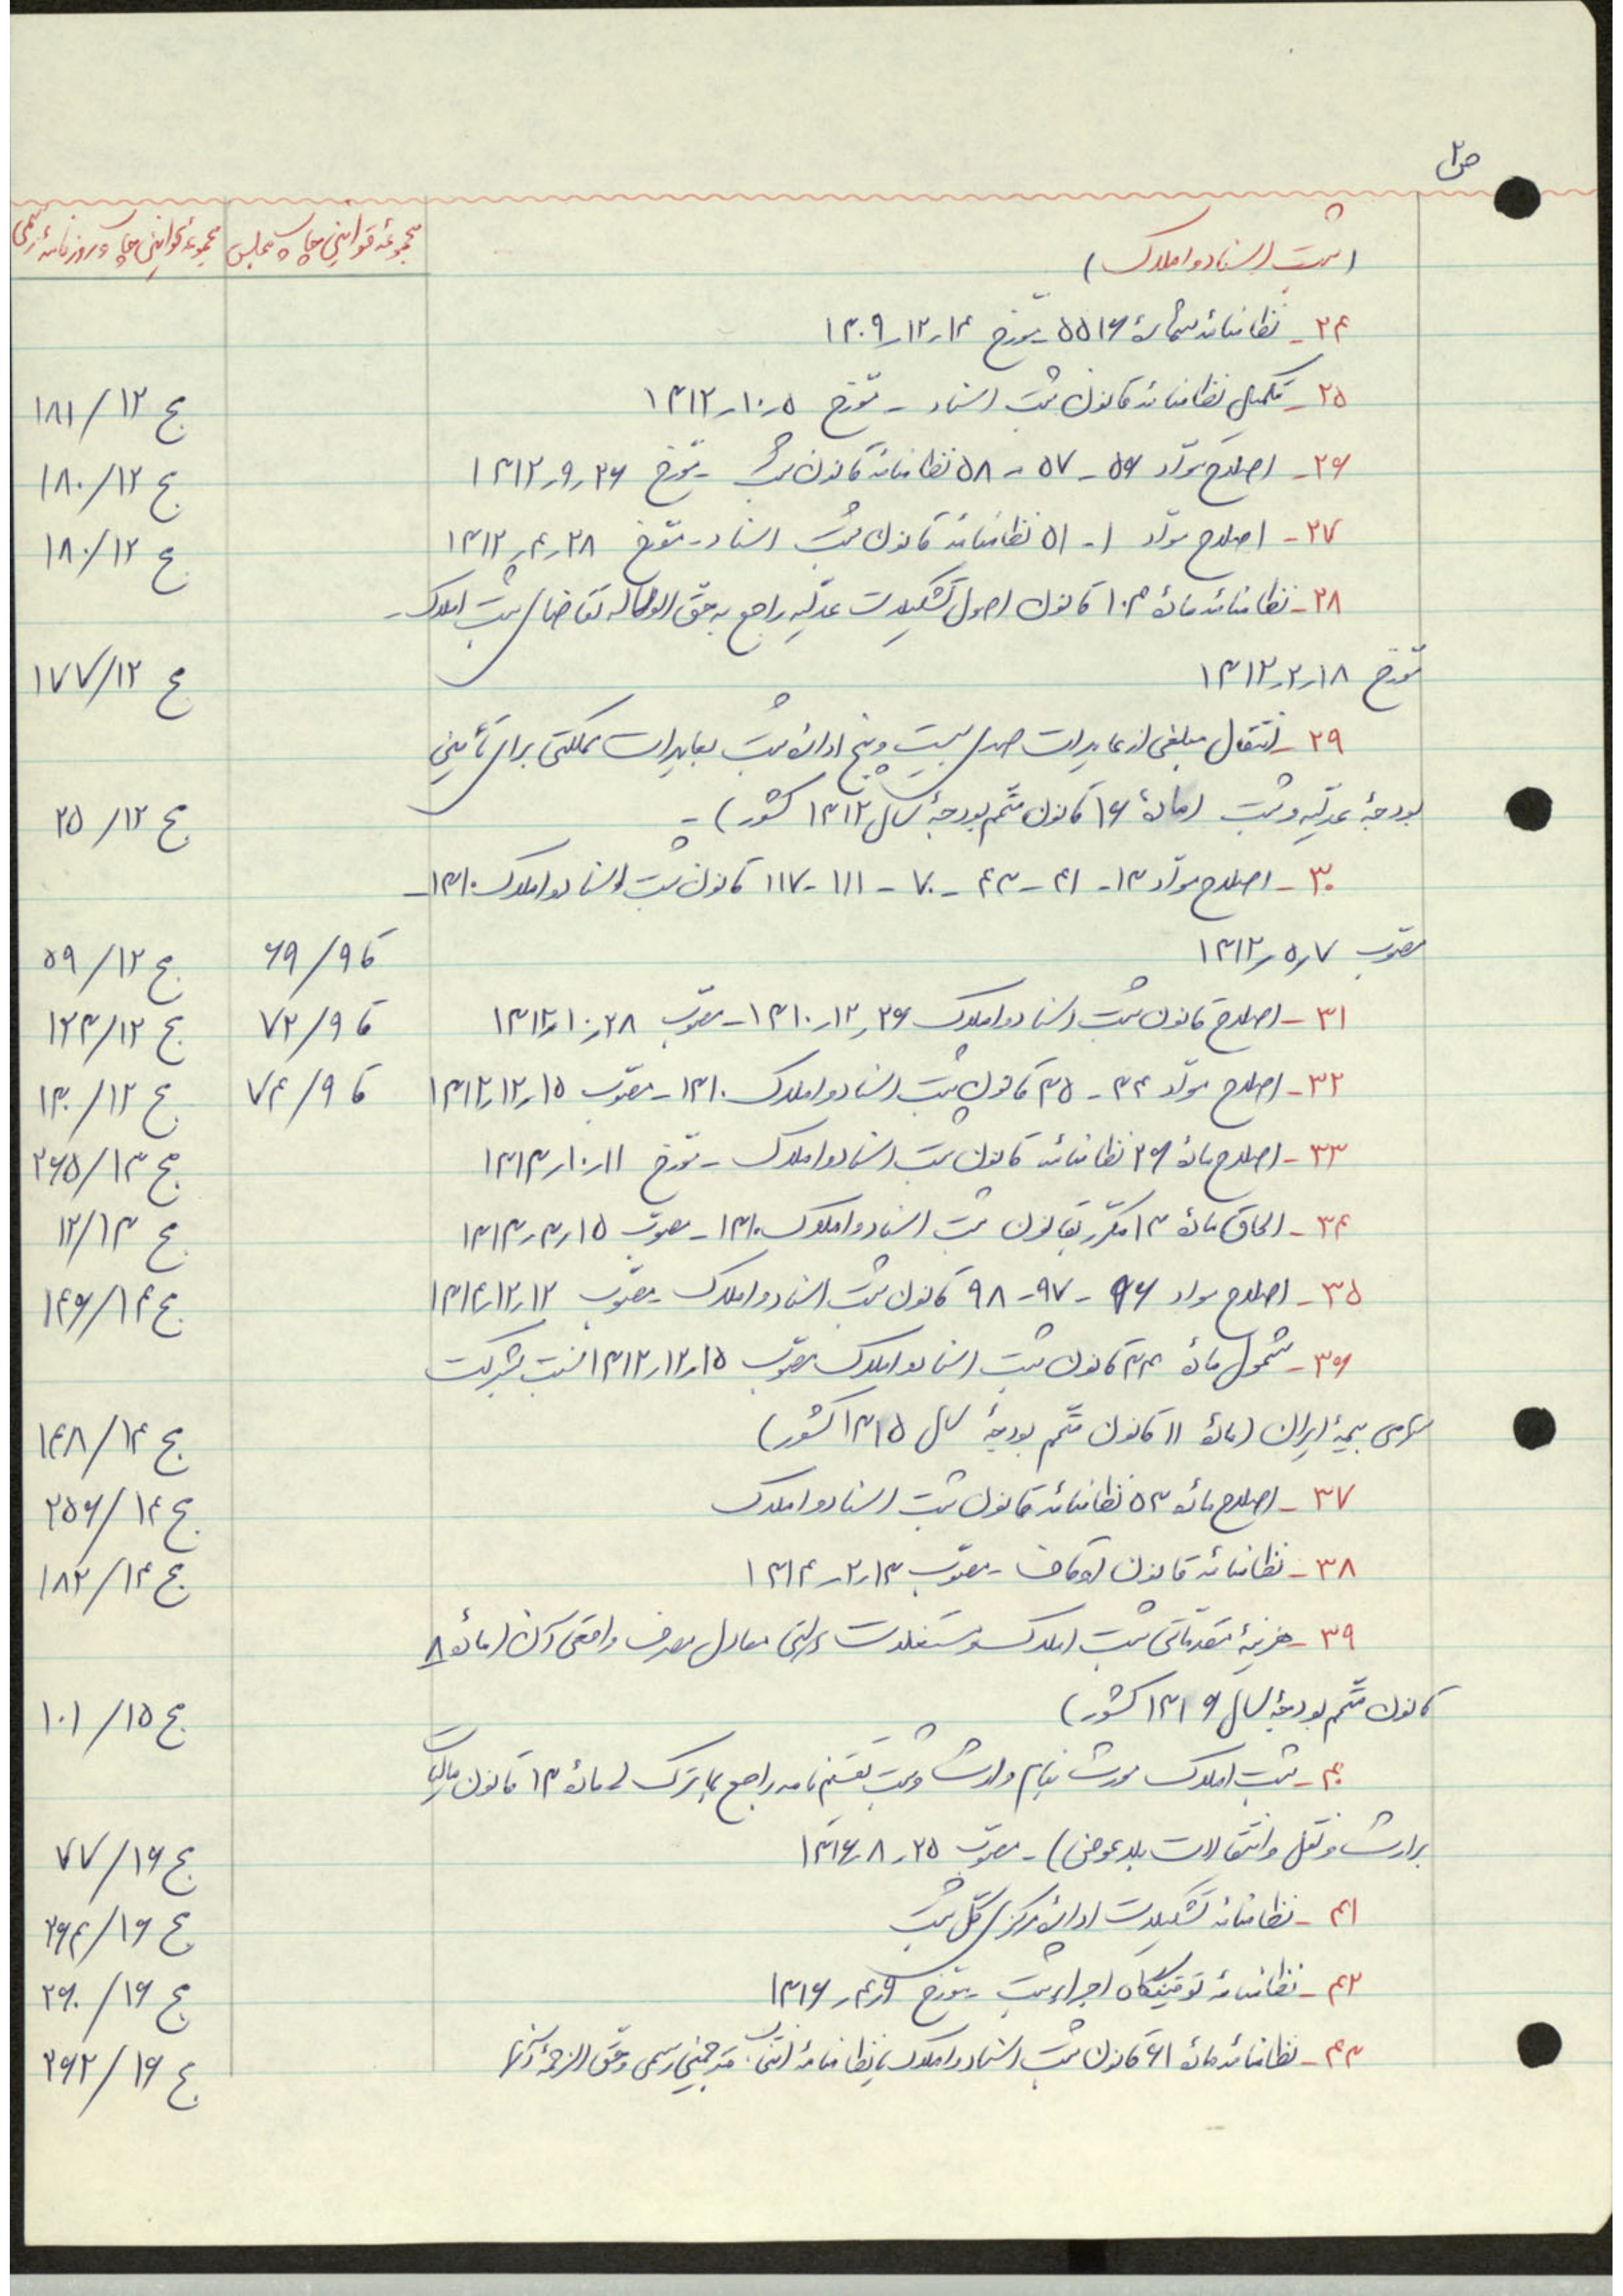 ص ۲
(ثبت اسناد و املاک) مجموعهٔ قوانین چاپ مجلس مجموعهٔ قوانین چاپ روزنامهٔ رسمی
۲۴ - نظامنامه شمارهٔ ۵۵۱۶ - مورّخ ۱۴ر۱۲ر۱۳۰۹
۲۵ - تکمیل نظامنامه قانون ثبت اسناد - مورّخ ۵ر۱۰ر۱۳۱۲ ج ۱۲/۱۸۱
۲۶ - اصلاح موادّ ۵۶ - ۵۷ - ۵۸ نظامنامه قانون ثبت - مورّخ ۲۶ر۹ر۱۳۱۲ ج ۱۲/۱۸۰
۲۷ - اصلاح موادّ ۱ - ۵۱ نظامنامه قانون ثبت اسناد - مورّخ ۲۸ر۴ر۱۳۱۲ ج ۱۲/۱۸۰
۲۸ - نظامنامه مادهٔ ۱۰۳ قانون اصول تشکیلات عدلیّه راجع به حقّ الوکاله تقاضای ثبت املاک -
مورّخ ۱۸ر۲ر۱۳۱۲ ج ۱۲/۱۷۷
۲۹ - انتقال مبلغی از عایدات صدی بیست و پنج ادارهٔ ثبت بعایدات مملکتی برای تأمین
بودجهٔ عدلیّه و ثبت (مادهٔ ۱۶ قانون متّمم بودجهٔ سال ۱۳۱۲ کشور) - ج ۱۲/۲۵
۳۰ - اصلاح موادّ ۱۳ - ۴۱ - ۴۳ - ۷۰ - ۱۱۱ - ۱۱۷ قانون ثبت اسناد و املاک ۱۳۱۰ -
مصوّب ۷ر۵ر۱۳۱۲ قا ۹/۶۹ ج ۱۲/۵۹
۳۱ - اصلاح قانون ثبت اسناد و املاک ۲۶ر۱۲ر۱۳۱۰ - مصوّب ۲۸ر۱۰ر۱۳۱۲ قا ۹/۷۲ ج ۱۲/۱۲۳
۳۲ - اصلاح موادّ ۳۴ - ۳۵ قانون ثبت اسناد و املاک ۱۳۱۰ - مصوّب ۱۵ر۱۲ر۱۳۱۲ قا ۹/۷۴ ج ۱۲/۱۳۰
۳۳ - اصلاح مادهٔ ۲۶ نظامنامه قانون ثبت اسناد و املاک - مورّخ ۱۱ر۱۰ر۱۳۱۳ ج ۱۳/۲۶۵
۳۴ - الحاق مادهٔ ۱۳ مکرّر بقانون ثبت اسناد و املاک ۱۳۱۰ - مصوّب ۱۵ر۳ر۱۳۱۳ ج ۱۳/۱۲
۳۵ - اصلاح مواد ۹۶ - ۹۷ - ۹۸ قانون ثبت اسناد و املاک - مصوّب ۱۲ر۱۲ر۱۳۱۴ ج ۱۴/۱۴۶
۳۶ - شمول مادهٔ ۳۴ قانون ثبت اسناد و املاک مصوّب ۱۵ر۱۲ر۱۳۱۲ نسبت بشرکت
سهامی بیمهٔ ایران (مادهٔ ۱۱ قانون متّمم بودجهٔ سال ۱۳۱۵ کشور) ج ۱۴/۱۴۸
۳۷ - اصلاح مادهٔ ۵۳ نظامنامه قانون ثبت اسناد و املاک ج ۱۴/۲۵۶
۳۸ - نظامنامه قانون اوقاف - مصوّب ۱۳ر۲ر۱۳۱۴ ج ۱۴/۱۸۲
۳۹ - هزینهٔ مقدّماتی ثبت املاک و مستغلات دولتی معادل مصرف واقعی آن (مادهٔ ۸
قانون متّمم بودجهٔ سال ۱۳۱۶ کشور) ج ۱۵/۱۰۱
۴۰ - ثبت املاک مورث بنام وارث و ثبت تقسیم نامه راجع بماترک (مادهٔ ۱۳ قانون مالیات
بر ارث و نقل و انتقالات بلاعوض) - مصوّب ۲۵ر۸ر۱۳۱۶ ج ۱۶/۷۷
۴۱ - نظامنامه تشکیلات ادارهٔ مرکزی کلّ ثبت ج ۱۶/۲۶۴
۴۲ - نظامنامه توقیفگاه اجراء ثبت - مورّخ ۶ر۴ر۱۳۱۶ ج ۱۶/۲۶۰
۴۳ - نظامنامه مادهٔ ۶۱ قانون ثبت اسناد و املاک یا نظامنامه انتخاب مترجمین رسمی و حقّ الترجمهٔ آنها ج ۱۶/۲۶۲